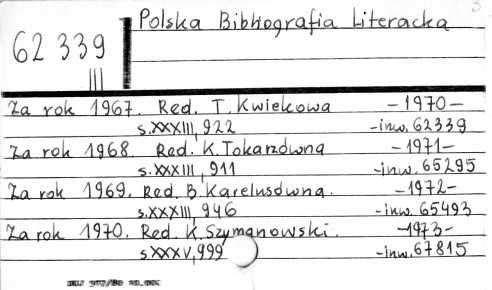 Polska Bibliografia Literacka
3
62 339
III
Za rok 1967. Red. T. Kwiekowa -1970-
s.XXXIII, 922 -inw. 62339
Za rok 1968. Red. K. Tokarzówna -1971-
s.XXXIII, 911 -inw. 65295
Za rok 1969. Red. B. Karelusówna. -1972-
s.XXXIII, 946 -inw. 65493
Za rok 1970. Red. K. Szymanowski. -1973-
s.XXXV, 999 -inw. 67815